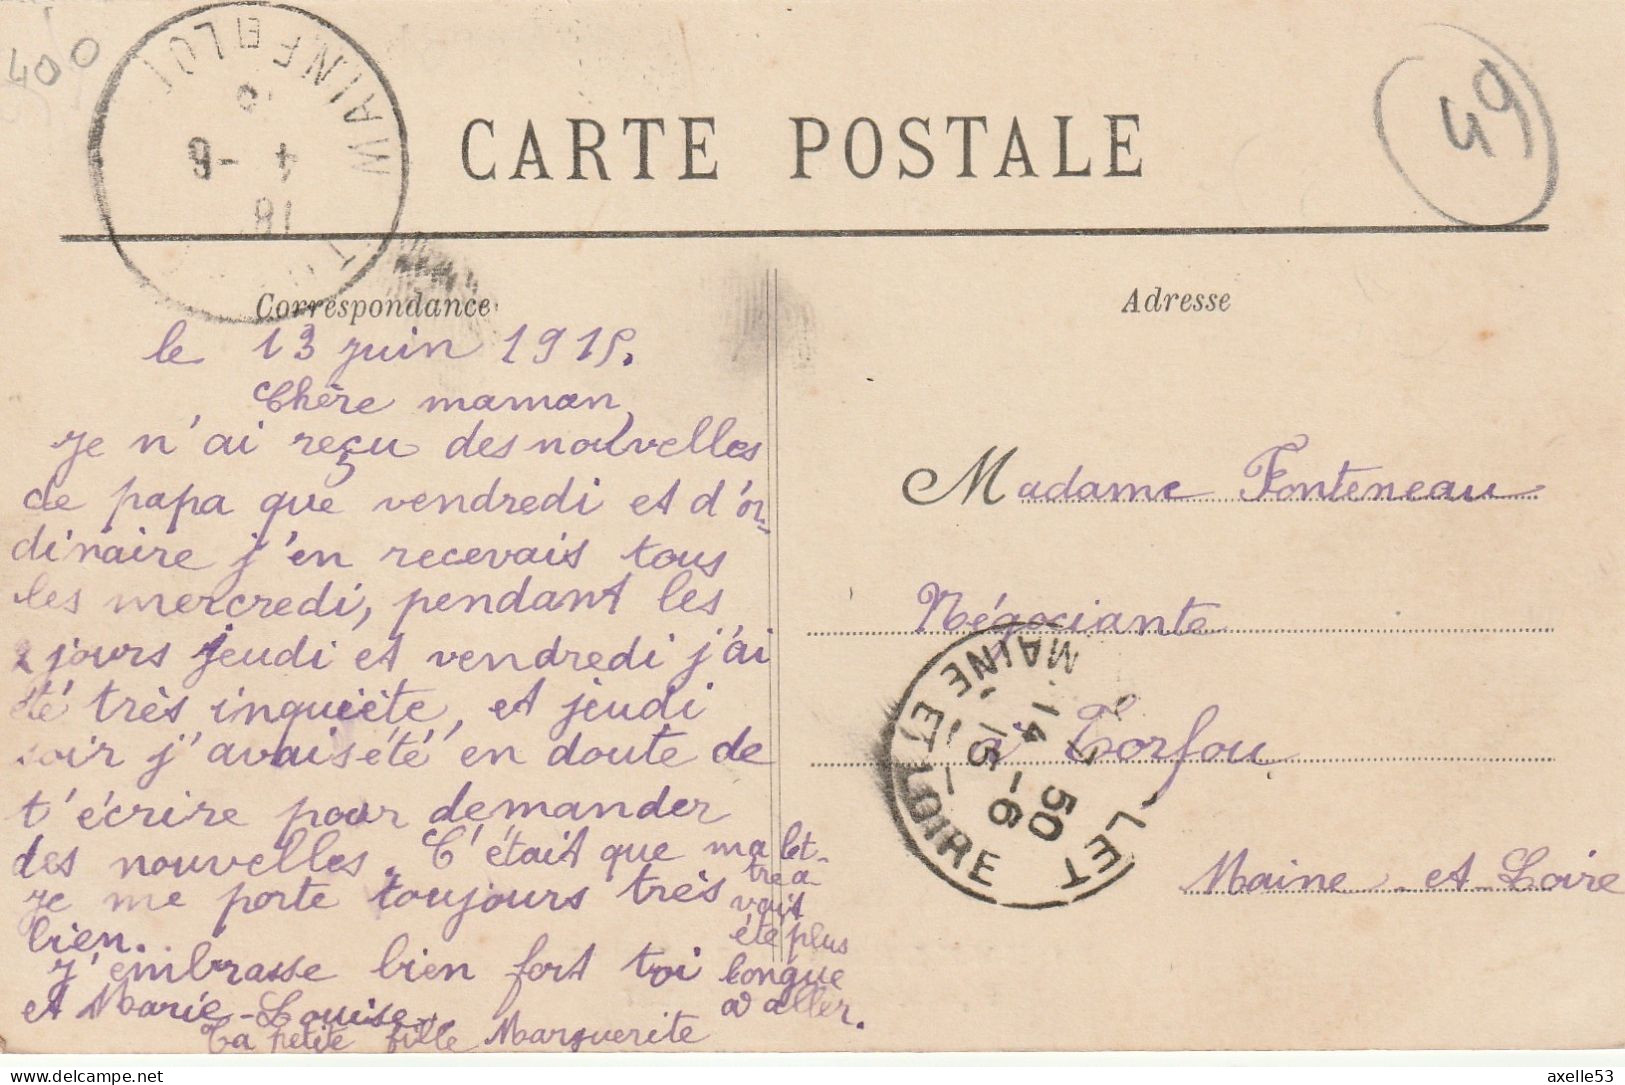 400
MAINE
14 -6
18
CARTE POSTALE
49
Correspondance
Adresse
le 13 juin 1915.
Chère maman,
Je n'ai reçu des nouvelles
de papa que vendredi et d'or-
dinaire j'en recevais tous
les mercredi, pendant les
2 jours jeudi et vendredi j'ai
été très inquiète, et jeudi
soir j'avais été en doute de
t'écrire pour demander
des nouvelles. C'était que ma let-
tre a-
vait
été plus
longue
a aller.
Je me porte toujours très
bien.
J'embrasse bien fort toi
et Marie-Louise.
Ta petite fille Marguerite
Madame Fonteneau
Négociante
à Torfou
Maine-et-Loire
MAINE ET LOIRE
14 -6
15
50
LET
axelle53
delcampe.net